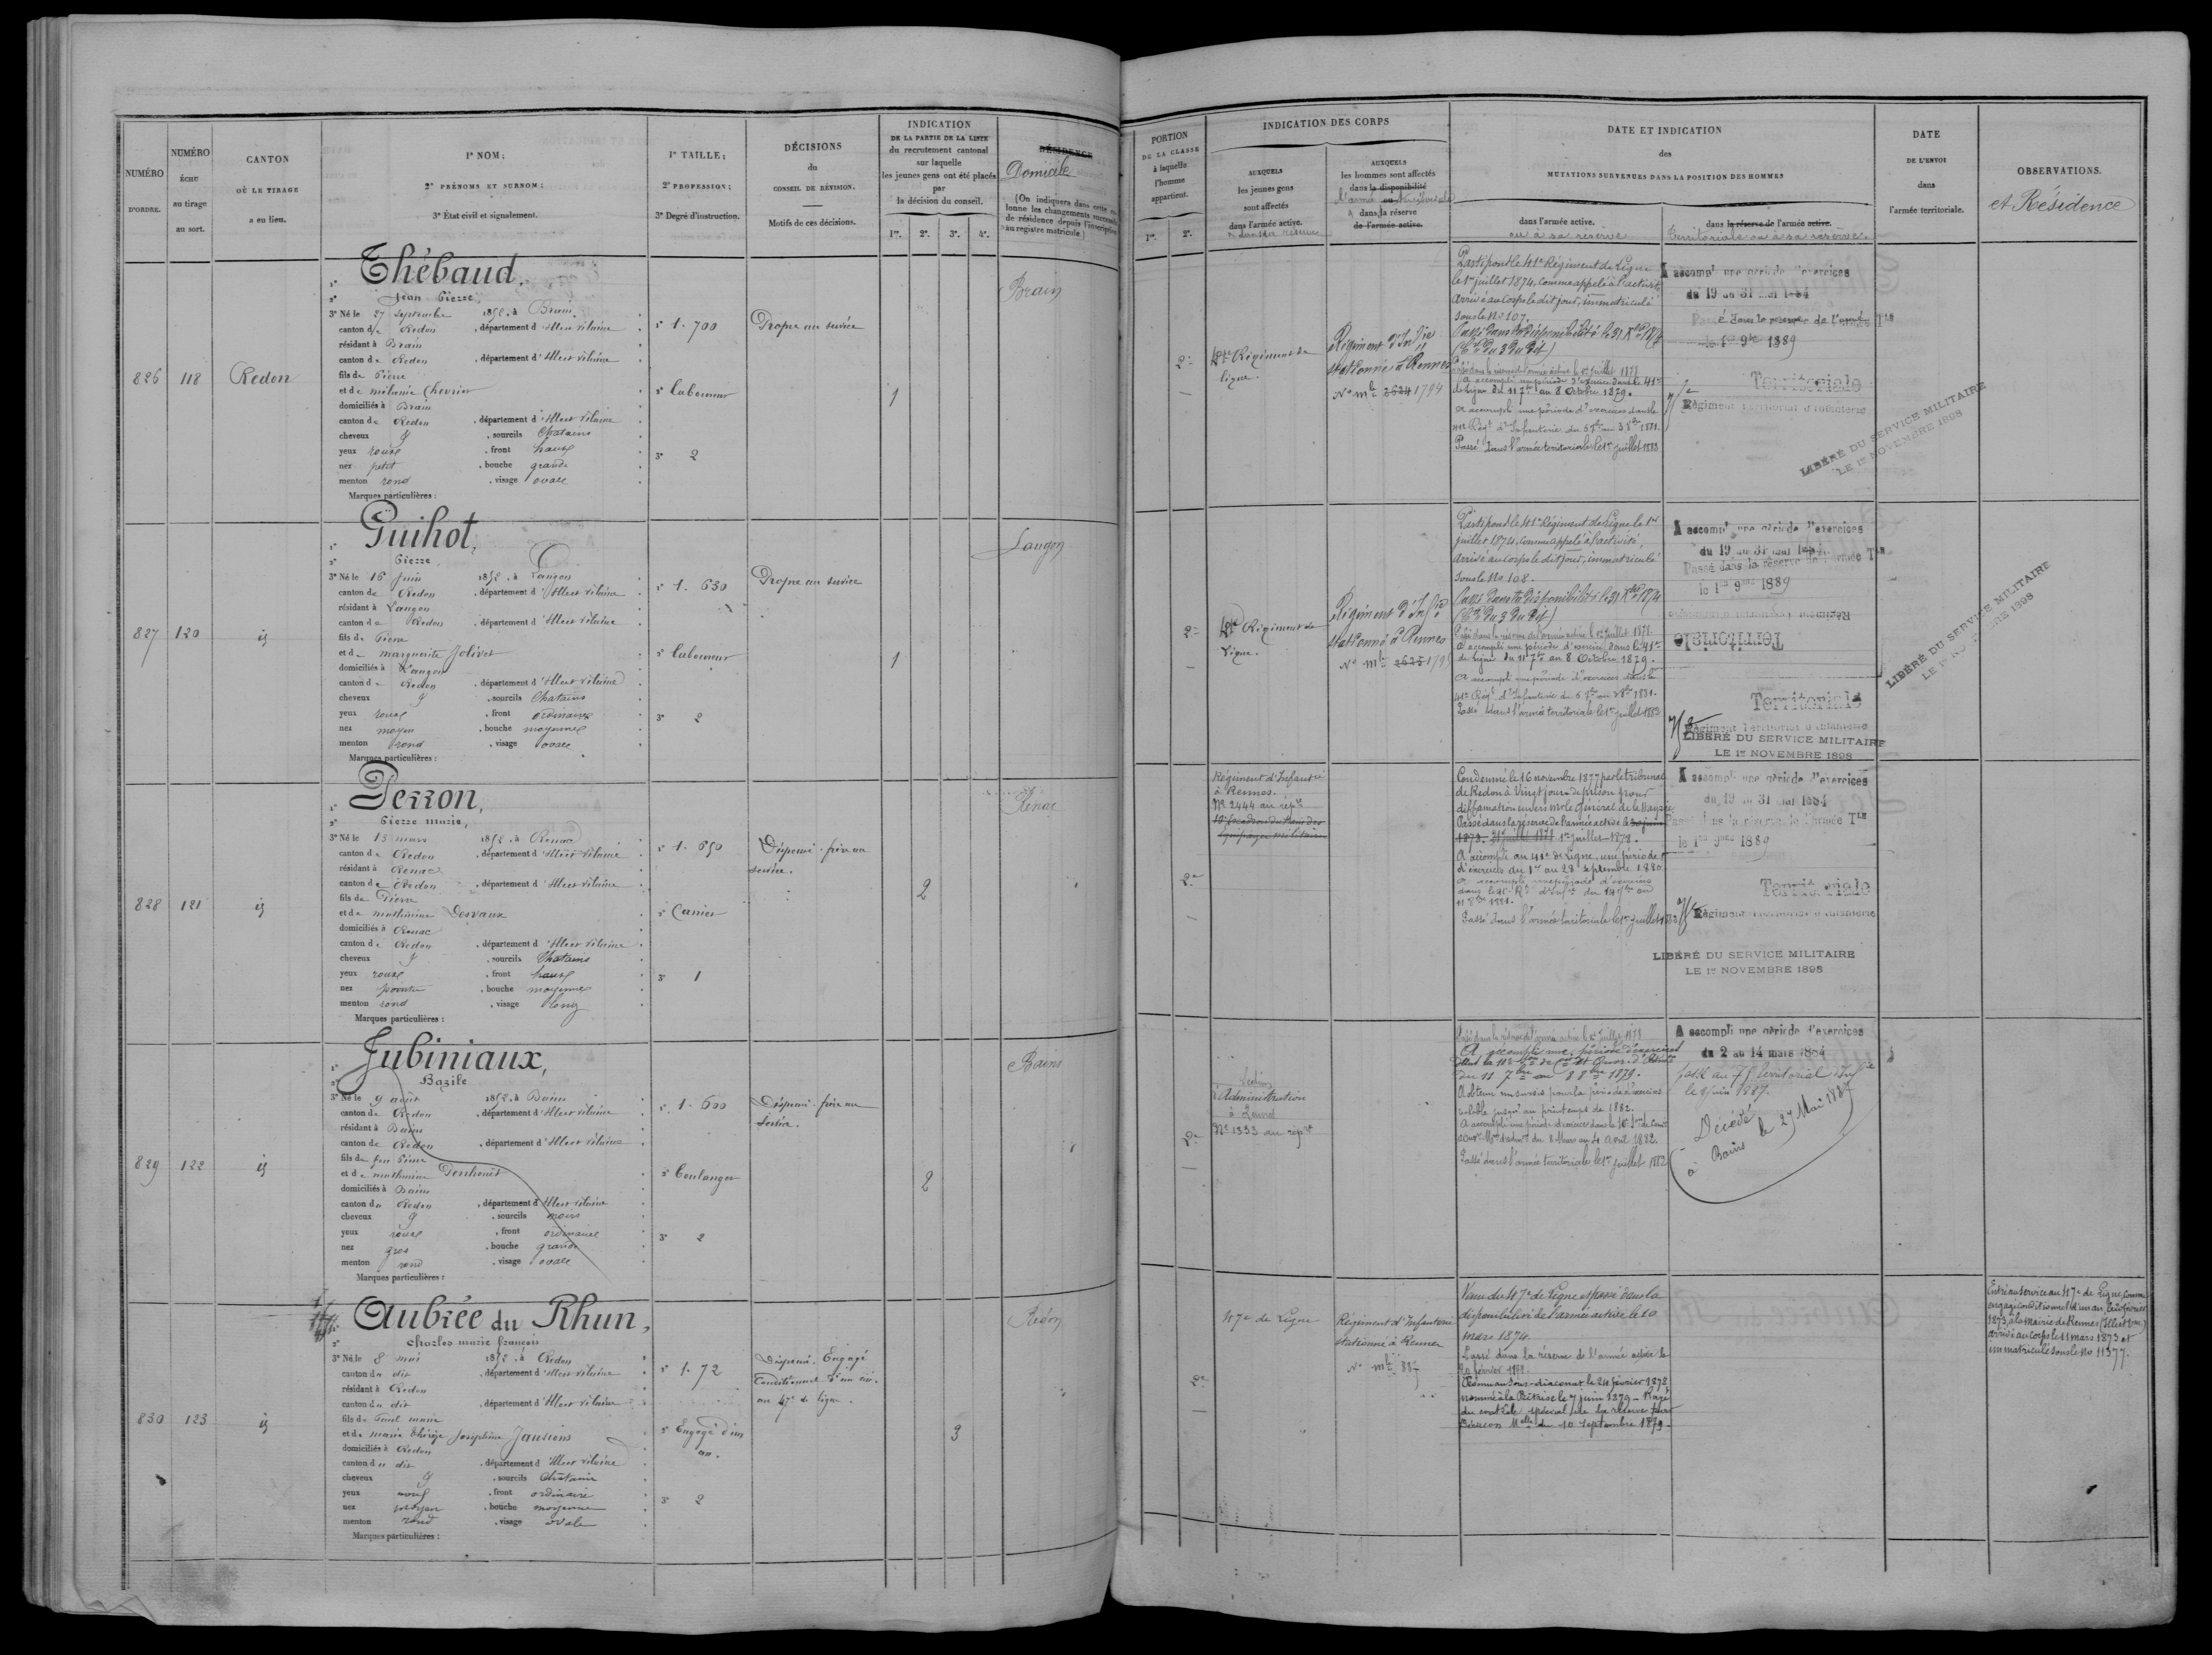 NUMÉRO
D'ORDRE.
NUMÉRO
ÉCHU
au tirage
au sort.
CANTON
OÙ LE TIRAGE
a eu lieu.
1° NOM;
2° PRÉNOMS ET SURNOM;
3° État civil et signalement.
1° TAILLE;
2° PROFESSION;
3° Degré d'instruction.
DÉCISIONS
du
CONSEIL DE RÉVISION.
Motifs de ces décisions.
INDICATION
DE LA PARTIE DE LA LISTE
du recrutement cantonal
sur laquelle
les jeunes gens ont été placés
par
la décision du conseil.
1re. 2e. 3e. 4e.
RÉSIDENCE
Domicile
(On indiquera dans cette
lonne les changements
de résidence depuis l'inscription
au registre matricule.)
826
118
Redon
1° Thébaud,
2° Jean Pierre,
3° Né le 27 Septembre 1852, à Brain
canton de Redon, département d'Ille et Vilaine
résidant à Brain
canton de Redon, département d'Ille et Vilaine
fils de Pierre
et de mélanie Chevrier
domiciliés à Brain
canton de Redon, département d'Ille et Vilaine
cheveux , sourcils Chatains
yeux roux, front haut
nez petit, bouche grande
menton rond, visage ovale
Marques particulières :
1° 1. 700
2° Laboureur
3° 2
Propre au service
1
Brain
827
120
id
1° Guihot,
2° Pierre,
3° Né le 16 Juin 1852, à Langon
canton de Redon, département d'Ille et Vilaine
résidant à Langon
canton de Redon, département d'Ille et Vilaine
fils de Pierre
et de marguerite Jolivet
domiciliés à Langon
canton de Redon, département d'Ille et Vilaine
cheveux , sourcils Chatains
yeux roux, front ordinaire
nez moyen, bouche moyenne
menton rond, visage ovale
Marques particulières :
1° 1. 630
2° Laboureur
3° 2
Propre au service
1
Langon
828
121
id
1° Perron,
2° Pierre marie,
3° Né le 15 mars 1852, à Renac
canton de Redon, département d'Ille et Vilaine
résidant à Renac
canton de Redon, département d'Ille et Vilaine
fils de Pierre
et de mathurine Desvaux
domiciliés à Renac
canton de Redon, département d'Ille et Vilaine
cheveux , sourcils Chatains
yeux roux, front haut
nez pointu, bouche moyenne
menton rond, visage long
Marques particulières :
1° 1. 650
2° Carrier
3° 1
Dispensé. frère au
service.
2
Renac
829
122
id
1° Jubiniaux,
2° Bazile
3° Né le 9 août 1852, à Bains
canton de Redon, département d'Ille et Vilaine
résidant à Bains
canton de Redon, département d'Ille et Vilaine
fils de feu Pierre
et de mathurine
domiciliés à Bains
canton de Redon, département d'Ille et Vilaine
cheveux , sourcils noirs
yeux roux, front ordinaire
nez gros, bouche grande
menton rond, visage ovale
Marques particulières :
1° 1. 600
2° Boulanger
3° 2
Dispensé. frère au
service.
2
Bains
830
123
id
1° Aubrée du Rhun,
2° Charles marie françois
3° Né le 8 mai 1852, à Redon
canton du dit, département d'Ille et Vilaine
résidant à Redon
canton du dit, département d'Ille et Vilaine
fils de Paul marie
et de marie thérèse Joséphine Jausions
domiciliés à Redon
canton du dit, département d'Ille et Vilaine
cheveux , sourcils Chatains
yeux , front ordinaire
nez moyen, bouche moyenne
menton rond, visage ovale
Marques particulières :
1° 1. 72
2° Engagé d'un
an.
3° 2
Dispensé. Engagé
Conditionnel d'un an.
au 47e de ligne.
3
Redon
PORTION
DE LA CLASSE
à laquelle
l'homme
appartient.
1re. 2e.
INDICATION DES CORPS
AUXQUELS
les jeunes gens
sont affectés
dans l'armée active.
ou dans sa réserve
AUXQUELS
les hommes sont affectés
dans la disponibilité
l'armée ou territoriale
dans la réserve
de l'armée active.
DATE ET INDICATION
des
MUTATIONS SURVENUES DANS LA POSITION DES HOMMES
dans l'armée active.
ou à sa réserve
dans la réserve de l'armée active.
territoriale ou à sa réserve.
DATE
DE L'ENVOI
dans
l'armée territoriale.
OBSERVATIONS.
et Résidence
2e
41e Régiment de
ligne.
Régiment d'Inf ie
stationné à Rennes
No mle 2624 1794
Parti pour le 41e Régiment de Ligne
le 1er juillet 1874, comme appelé à l'activité
Arrivé au Corps le dit jour, immatriculé
sous le No 107.
Passé dans la disponibilité le 31 Xbre 1874
Passé dans la réserve de l'armée active le 1er Juillet 1878
A accompli une période d'exercices dans le 41e
de Ligne du 11 7bre au 8 Octobre 1879.
A accompli une période d'exercices dans le
41e Régt d'Infanterie du 6 7bre au 3 8bre 1881.
Passé dans l'armée territoriale le 1er juillet 1883
A accompli une période d'exercices
du 19 au 31 mai 1884
Passé dans la réserve de l'armée Tle
le 1er 9bre 1889
Territoriale
Régiment territorial d'infanterie
LIBÉRÉ DU SERVICE MILITAIRE
LE 1er NOVEMBRE 1898
2e
41e Régiment de
Ligne.
Régiment d'Inf ie
stationné à Rennes
No mle 2625 179
Parti pour le 41e Régiment de Ligne le 1er
juillet 1874, comme appelé à l'activité,
arrivé au corps le dit jour, immatriculé
sous le No 108.
Passé dans la disponibilité le 31 Xbre 1874
Passé dans la réserve de l'armée active le 1er Juillet 1878.
A accompli une période d'exercices dans le 41e
de Ligne du 11 7bre au 8 Octobre 1879.
A accompli une période d'exercices dans le
41e Régt d'Infanterie du 6 7bre au 3 8bre 1881.
Passé dans l'armée territoriale le 1er juillet 1883
A accompli une période d'exercices
du 19 au 31 mai 1884
Passé dans la réserve de l'armée Tle
le 1er 9bre 1889
Régiment territorial d'infanterie
Territoriale
Territoriale
Régiment territorial d'infanterie
LIBÉRÉ DU SERVICE MILITAIRE
LE 1er NOVEMBRE 1898
LIBÉRÉ DU SERVICE MILITAIRE
LE 1er NOVEMBRE 1898
2e
Régiment d'Infanterie
à Rennes.
No 2444 au répre
Escadron du train des
Equipages militaires
Condamné le 16 novembre 1877 par le tribunal
de Redon à Vingt jours de prison pour
diffamation envers Mr le Général de la
Passé dans la réserve de l'armée active le 30 juin
1873. 31 juillet 1878 1er juillet 1878.
A accompli au 41e de Ligne, une période
d'exercices du 1er au 28 septembre 1880
A accompli une période d'exercices
dans le 41e Rt d'Infie du 14 7bre au
11 8bre 1881.
Passé dans l'armée territoriale le 1er juillet 1883
A accompli une période d'exercices
du 19 au 31 mai 1884
Passé dans la réserve de l'armée Tle
le 1er 9bre 1889
Territoriale
Régiment territorial d'infanterie
LIBÉRÉ DU SERVICE MILITAIRE
LE 1er NOVEMBRE 1898
2e
Section
d'Administration
No 1333 au répre
Passé dans la réserve de l'armée active le 1er Juillet 1878
A accompli une période d'exercices
du 11 7bre au 8 8bre 1879.
A obtenu un sursis pour la période d'exercices
valable jusqu'au printemps de 1882.
A accompli une période d'exercices dans la
du 8 Mars au 4 Avril 1882.
Passé dans l'armée territoriale le 1er juillet 1882
A accompli une période d'exercices
du 2 au 14 mars 1884
passé au territorial d'Infie
le 9 juin 1887.
Décédé
à Bains le 27 Mai 1887
2e
47e de Ligne
Régiment d'Infanterie
stationné à Rennes
No mle 887
Venu du 47e de Ligne et passé dans la
disponibilité de l'armée active le 10
mars 1874.
Passé dans la réserve de l'armée active le
février 1878
Promu au sous-diaconat le 24 février 1878
nommé à la Prêtrise le 7 juin 1879 - Rayé
du contrôle spécial de la réserve par
Décision Mlle du 10 septembre 1879.
Entré au service au 47e de Ligne, comme
engagé conditionnel d'un an, le 20 février
1873, à la Mairie de Rennes (Ille et Vne)
arrivé au corps le 11 mars 1873 et
immatriculé sous le No 11377.